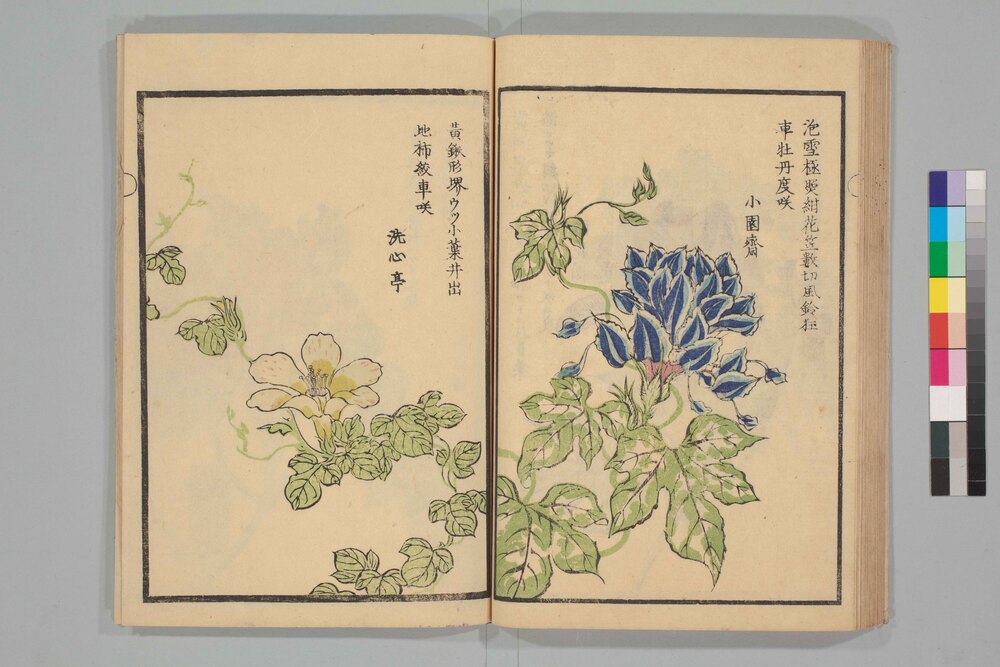 泡雪極照紺花笠数切風鈴狂
車牡丹度咲
小園齋
黄鍬形堺ウツ小葉井出
地柿絞車咲
洗心亭